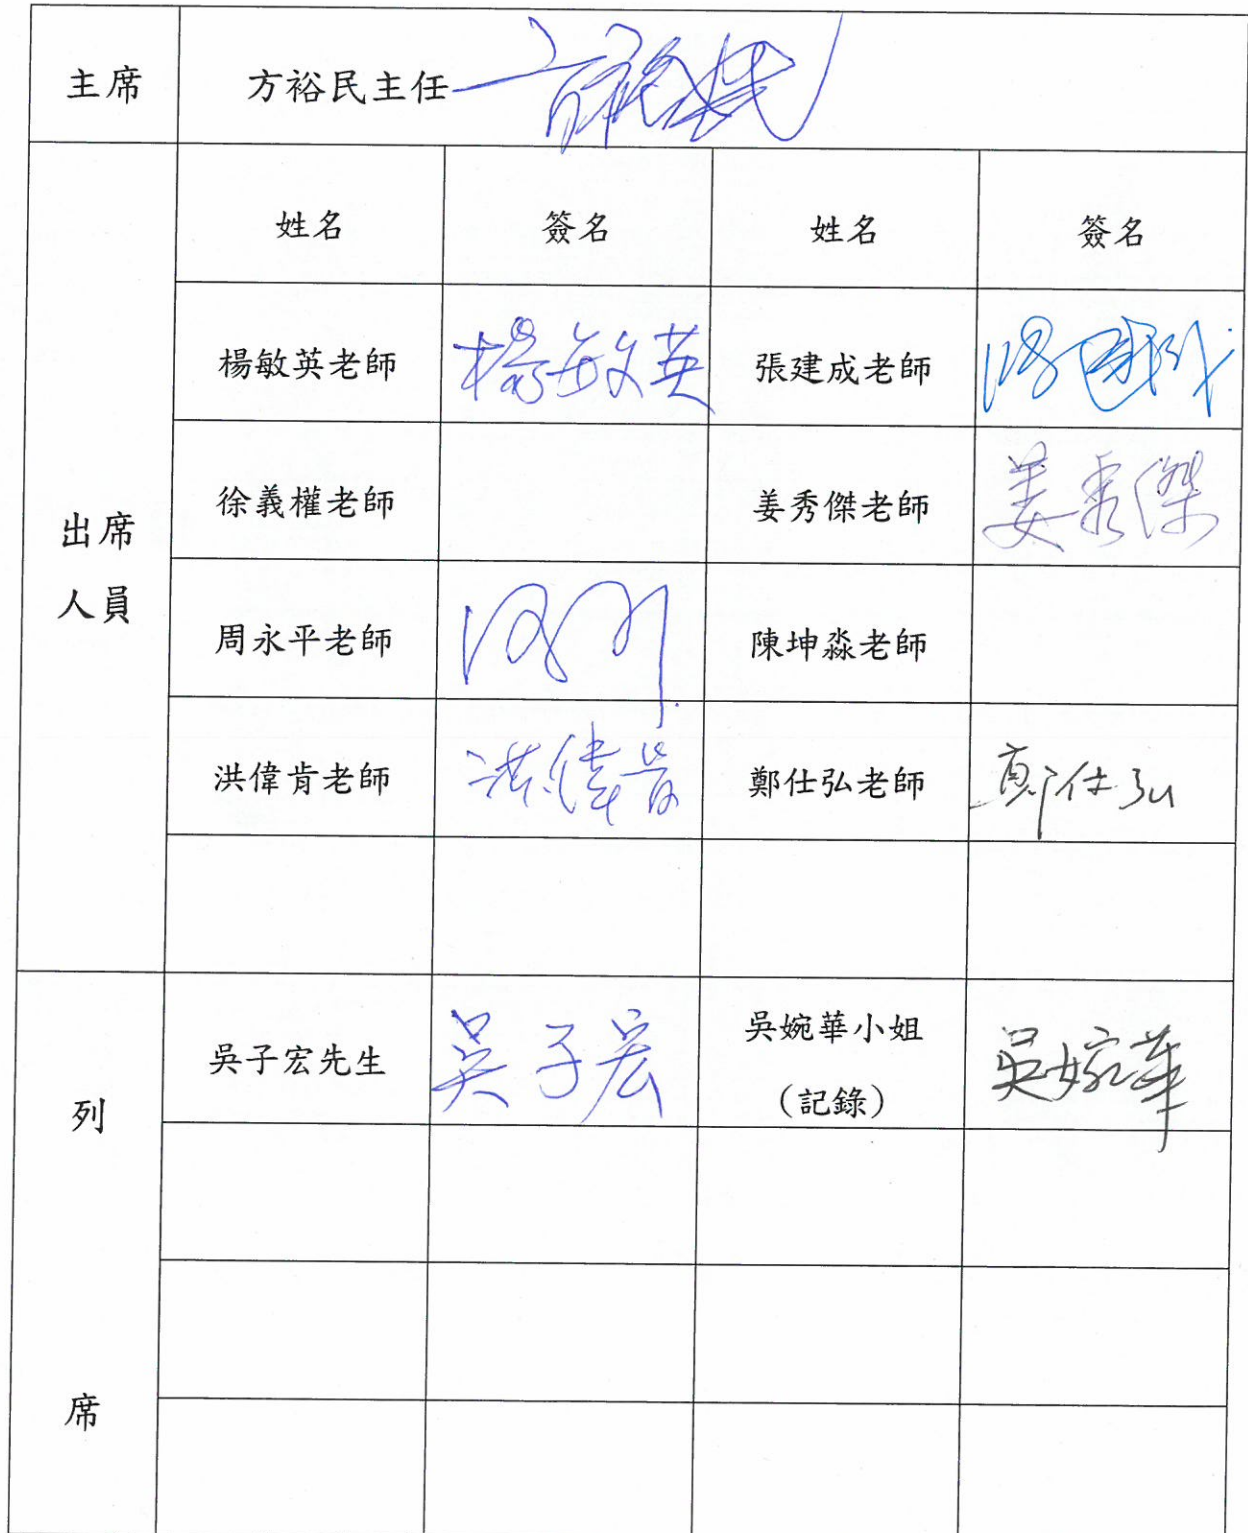 主席 方裕民主任
姓名 簽名 姓名 簽名
楊敏英老師 楊敏英 張建成老師
出席人員
徐義權老師 姜秀傑老師 姜秀傑
周永平老師 陳坤淼老師
洪偉肯老師 洪偉肯 鄭仕弘老師 鄭仕弘
列席
吳子宏先生 吳子宏 吳婉華小姐 吳婉華
(記錄)